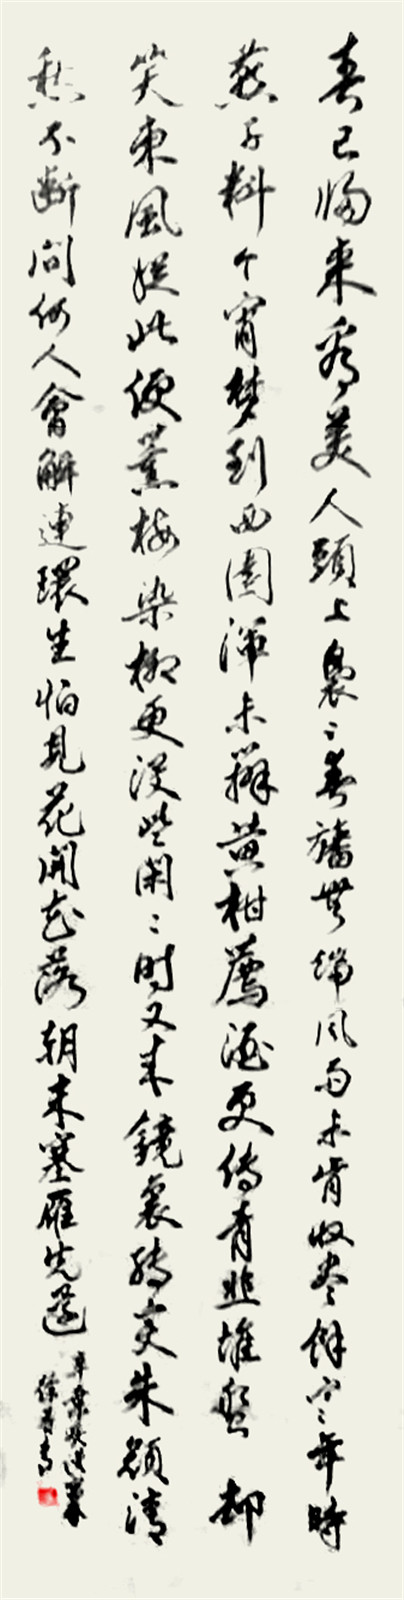 春已歸來看美人頭上裊〻春旛無端風雨未肯收盡餘寒年時
燕子料今宵夢到西園渾未辦黃柑薦酒更傳青韭堆盤却
笑東風從此便薰梅染柳更沒些閑〻時又來鏡裏轉變朱顏清
愁不斷問何人會解連環生怕見花開花落朝來塞雁先還
辛棄疾
徐